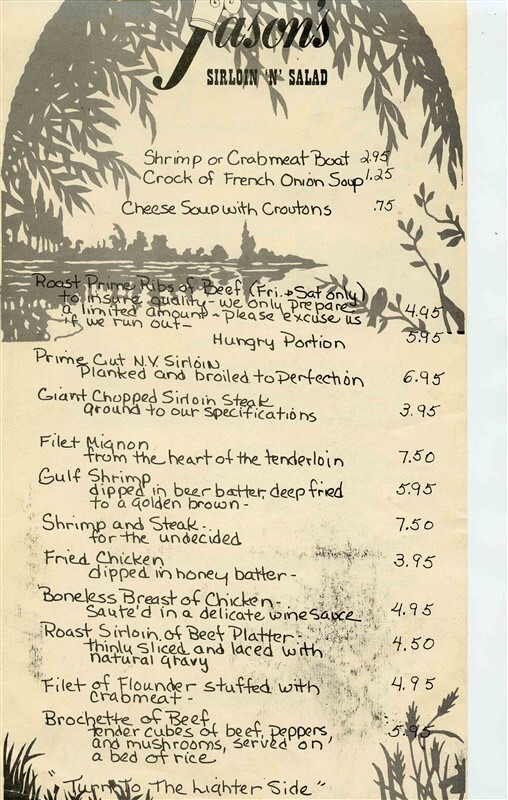 Jason's
SIRLOIN 'N' SALAD
Shrimp or Crabmeat Boat 2.95
Crock of French Onion Soup 1.25
Cheese Soup with Croutons .75
Roast Prime Ribs of Beef (Fri. & Sat only)
to insure quality - we only prepare
a limited amount - Please excuse us 4.95
if we run out -
Hungry Portion 5.95
Prime Cut N.Y. Sirloin
Planked and broiled to Perfection 6.95
Giant Chopped Sirloin Steak
ground to our specifications 3.95
Filet Mignon
from the heart of the tenderloin 7.50
Gulf Shrimp
dipped in beer batter, deep fried 5.95
to a golden brown -
Shrimp and Steak - 7.50
for the undecided
Fried Chicken 3.95
dipped in honey batter -
Boneless Breast of Chicken -
Sauté'd in a delicate wine sauce 4.95
Roast Sirloin of Beef Platter -
thinly sliced and laced with 4.50
natural gravy
Filet of Flounder stuffed with 4.95
crabmeat -
Brochette of Beef
tender cubes of beef, peppers, 5.95
and mushrooms, served on
a bed of rice
"Turn To The Lighter Side"